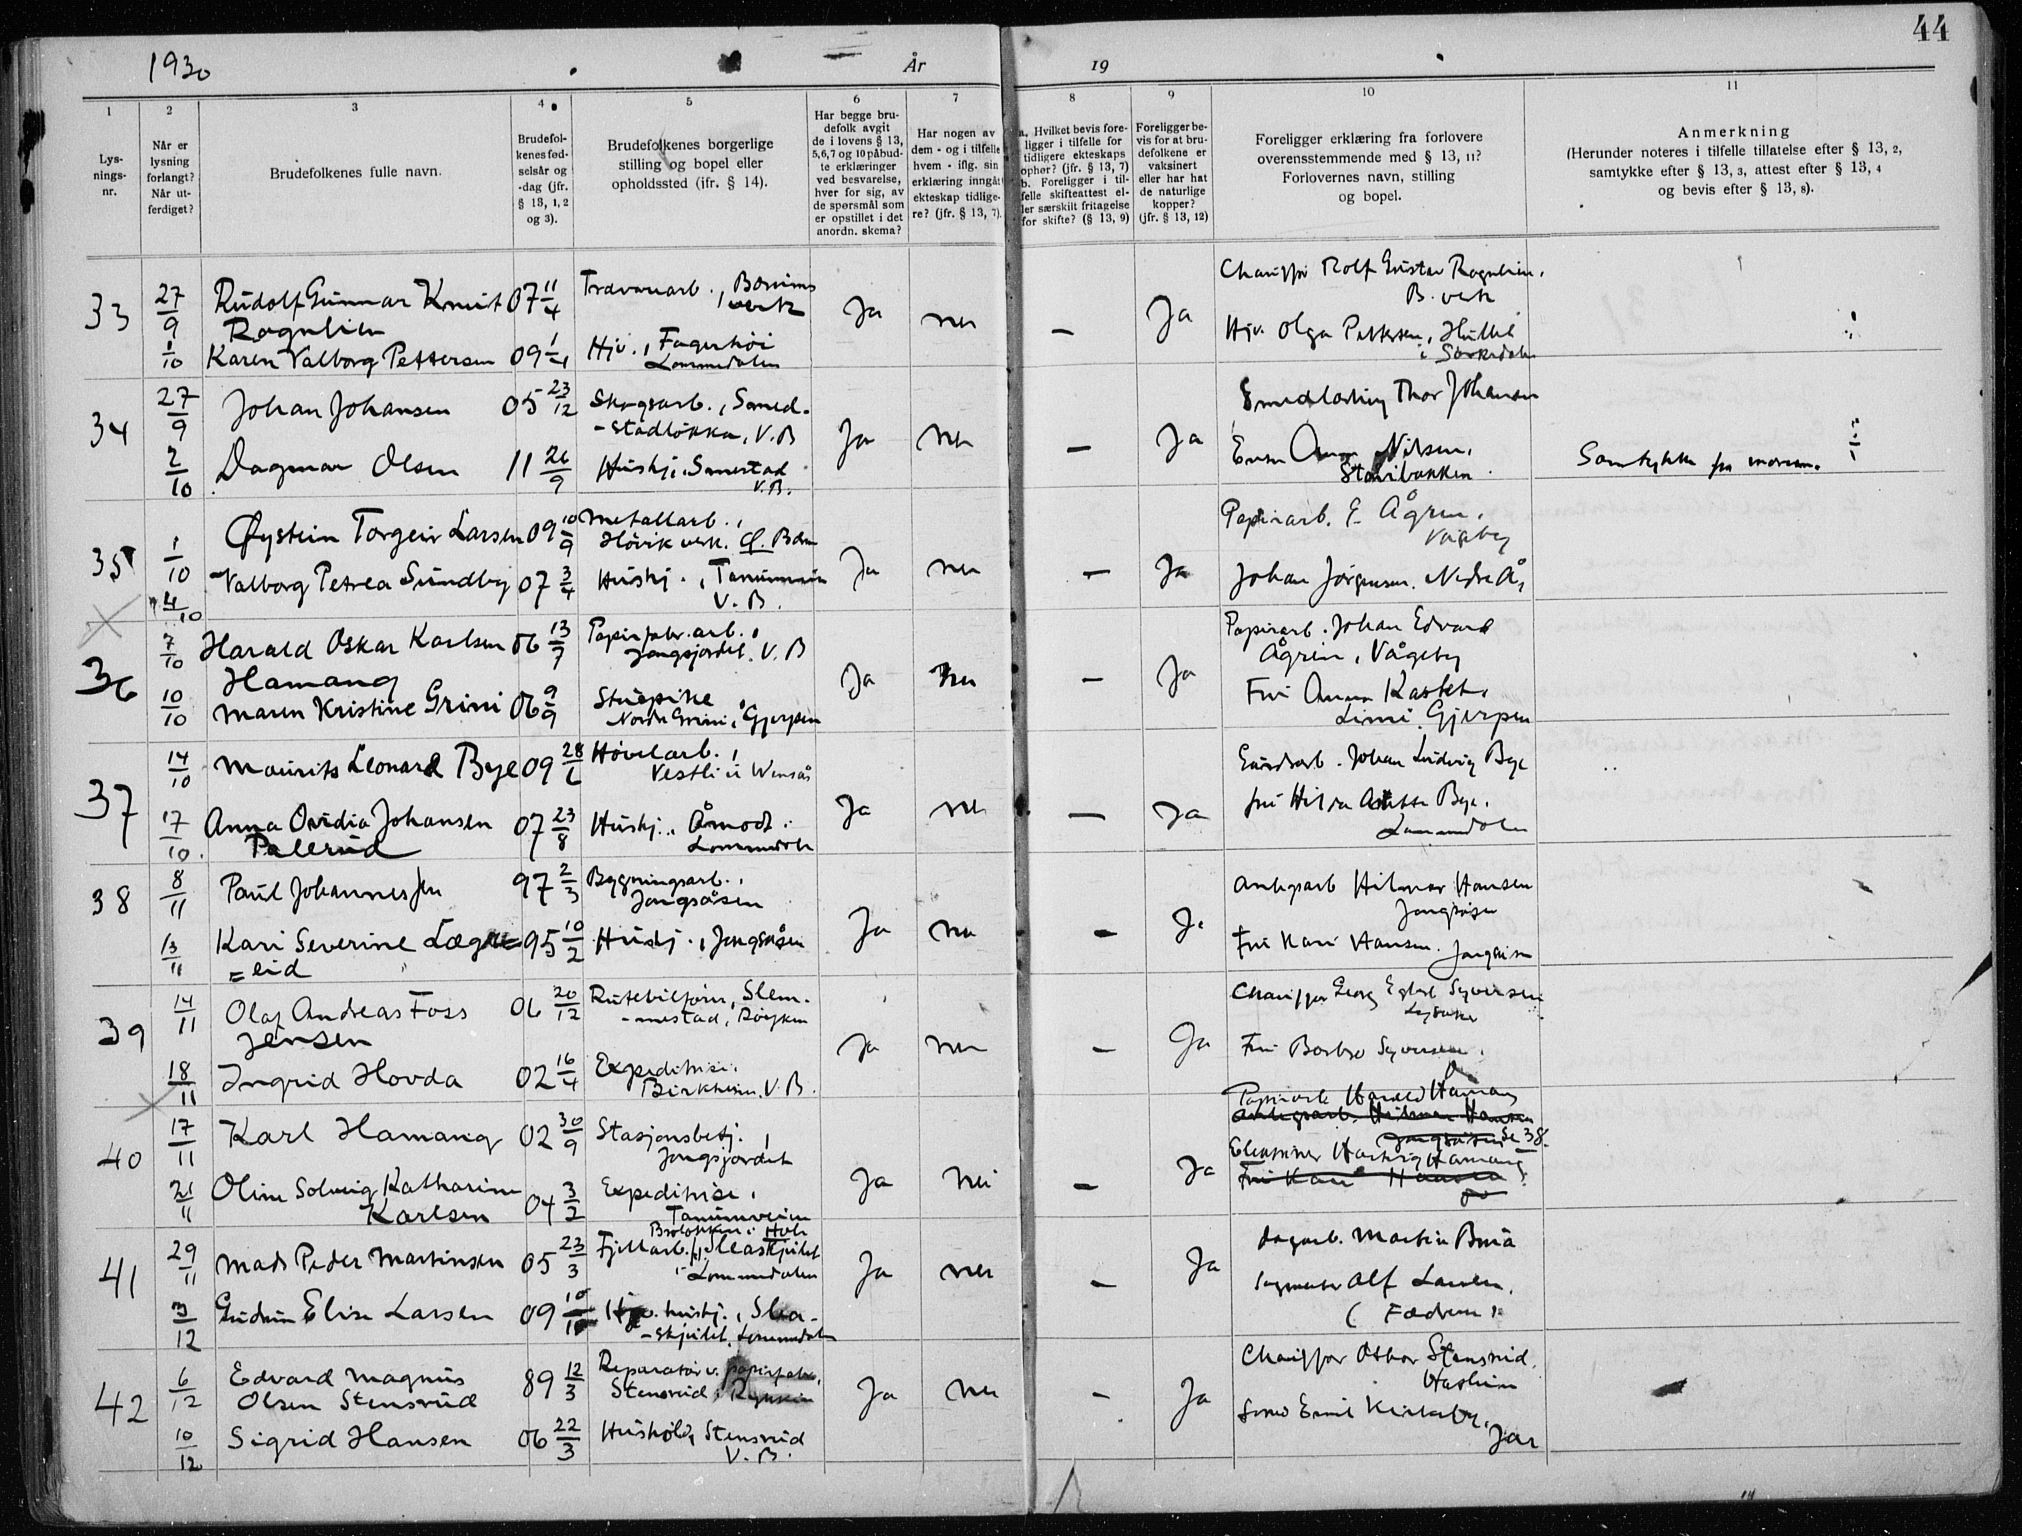 44
1930
År
19
1
2
3
4
5
6
7
8
9
10
11
Lys-
nings-
nr.
Når er
lysning
forlangt?
Når ut-
ferdiget?
Brudefolkenes fulle navn.
Brudefol-
kenes fød-
selsår og
-dag (jfr.
§ 13, 1, 2
og 3).
Brudefolkenes borgerlige
stilling og bopel eller
opholdssted (jfr. § 14).
Har begge bru-
defolk avgit
de i lovens § 13,
5,6,7 og 10 påbud-
te erklæringer
ved besvarelse,
hver for sig, av
de spørsmål som
er opstillet i det
anordn. skema?
Har nogen av
dem - og i tilfelle
hvem - iflg. sin
erklæring inngåt
ekteskap tidlige-
re? (jfr. § 13, 7).
a. Hvilket bevis fore-
ligger i tilfelle for
tidligere ekteskaps
ophør? (jfr. § 13, 7)
b. Foreligger i til-
felle skifteattest el-
ler særskilt fritagelse
for skifte? (§ 13, 9)
Foreligger be-
vis for at bru-
defolkene er
vaksinert
eller har hat
de naturlige
kopper?
(jfr. § 13, 12)
Foreligger erklæring fra forlovere
overensstemmende med § 13, 11?
Forlovernes navn, stilling
og bopel.
Anmerkning
(Herunder noteres i tilfelle tillatelse efter § 13, 2,
samtykke efter § 13, 3, attest efter § 13, 4
og bevis efter § 13, 8).
33
27/9
1/10
Rudolf Gunnar Knut
Rognlien
Karen Valborg Pettersen
07 11/4
Bærums
verk
Hjv., Fagerhøi
Lommedalen
Ja
nei
—
Ja
Chauffør Rolf Gustav Rognlien,
B. verk
Hjv. Olga Pettersen,
i Sørkedalen
34
27/9
2/10
Johan Johansen
Dagmar Olsen
05 23/12
11 26/9
Skogsarb., Smed-
-stadløkka, V.B
Hushj., Smestad
V.B.
Ja
nei
—
Ja
Thor Johansen
Nilsen,
Samtykke fra moren.
35
1/10
4/10
Øystein Torgeir Larsen
Valborg Petrea Sundby
09 10/9
07 3/4
Metallarb.,
Høvik verk. Ø. Bærum
Hushj.,
V.B.
Ja
nei
—
Ja
Papirarb. E. Ågren,
Johan Jørgensen. Nedre Å,
36
7/10
10/10
Harald Oskar Karlsen
Hamang
Maren Kristine Grini
06 13/7
06 9/9
Papirfabr.arb.,
Jongsjordet, V.B
Stuepike
Nordre Grini, Gjerpen
Ja
nei
—
Ja
Papirarb. Johan Edvard
Ågren, Vågeby
Fru Anna Kastet,
Limi, Gjerpen
37
14/10
17/10
Maurits Leonard Bye
Anna Ovidia Johansen
Palerud
07 23/8
Høvelarb.,
Hushj., Åmodt.
Lommedalen
Ja
nei
—
Ja
Johan Ludvig Bye
fru Hilda Bye,
Lommedalen
38
8/11
13/11
Paul Johannessen
Kari Severine Lægre=
=eid
97 2/3
95 10/2
Bygningsarb.,
Jongsåsen
Hushj., Jongsåsen
Ja
nei
—
Ja
Anlegsarb Hilmar Hansen
Jongsåsen
Fru Kari Hansen. Jongsåsen
39
14/11
18/11
Olaf Andreas Foss
Jensen
Ingrid Hovda
06 20/12
02 16/4
Rutebileier, Slem-
-mestad, Røyken
Expeditrise,
Birkheim, V.B.
Ja
nei
—
Ja
Chauffør Georg Syversen
Lysaker
Fru Borbro Syversen.
40
17/11
21/11
Karl Hamang
Oline Solveig Katharine
Karlsen
02 30/9
04 3/2
Stasjonsbetj.
Jongsjordet
Expeditrise,
Tanumveien
Ja
Nei
—
Ja
Papirarb Harald Hamang
Anlegsarb. Hilmar Hansen
Jongsåsen Se 38.
Hartvig Hamang
Fru Kari Hansen
do
41
29/11
3/12
Mads Peder Martinsen
Gudrun Elise Larsen
05 23/3
Hole
Fjellarb.,
i Lommedalen
hushj.,
-skjulet, Lommedalen
Ja
nei
—
Ja
Martin Braa
Alf Larsen,
(Fædrene)
42
6/12
10/12
Edvard Magnus
Olsen Stensrud
Sigrid Hansen
89 12/3
06 22/3
Reparatør v. papirfabr.,
Stensrud, Røyken
Hushold, Stensrud
V.B.
Ja
nei
—
Ja
Chauffør Othar Stensrud,
Haslum
Emil Kirkeby,
Jar